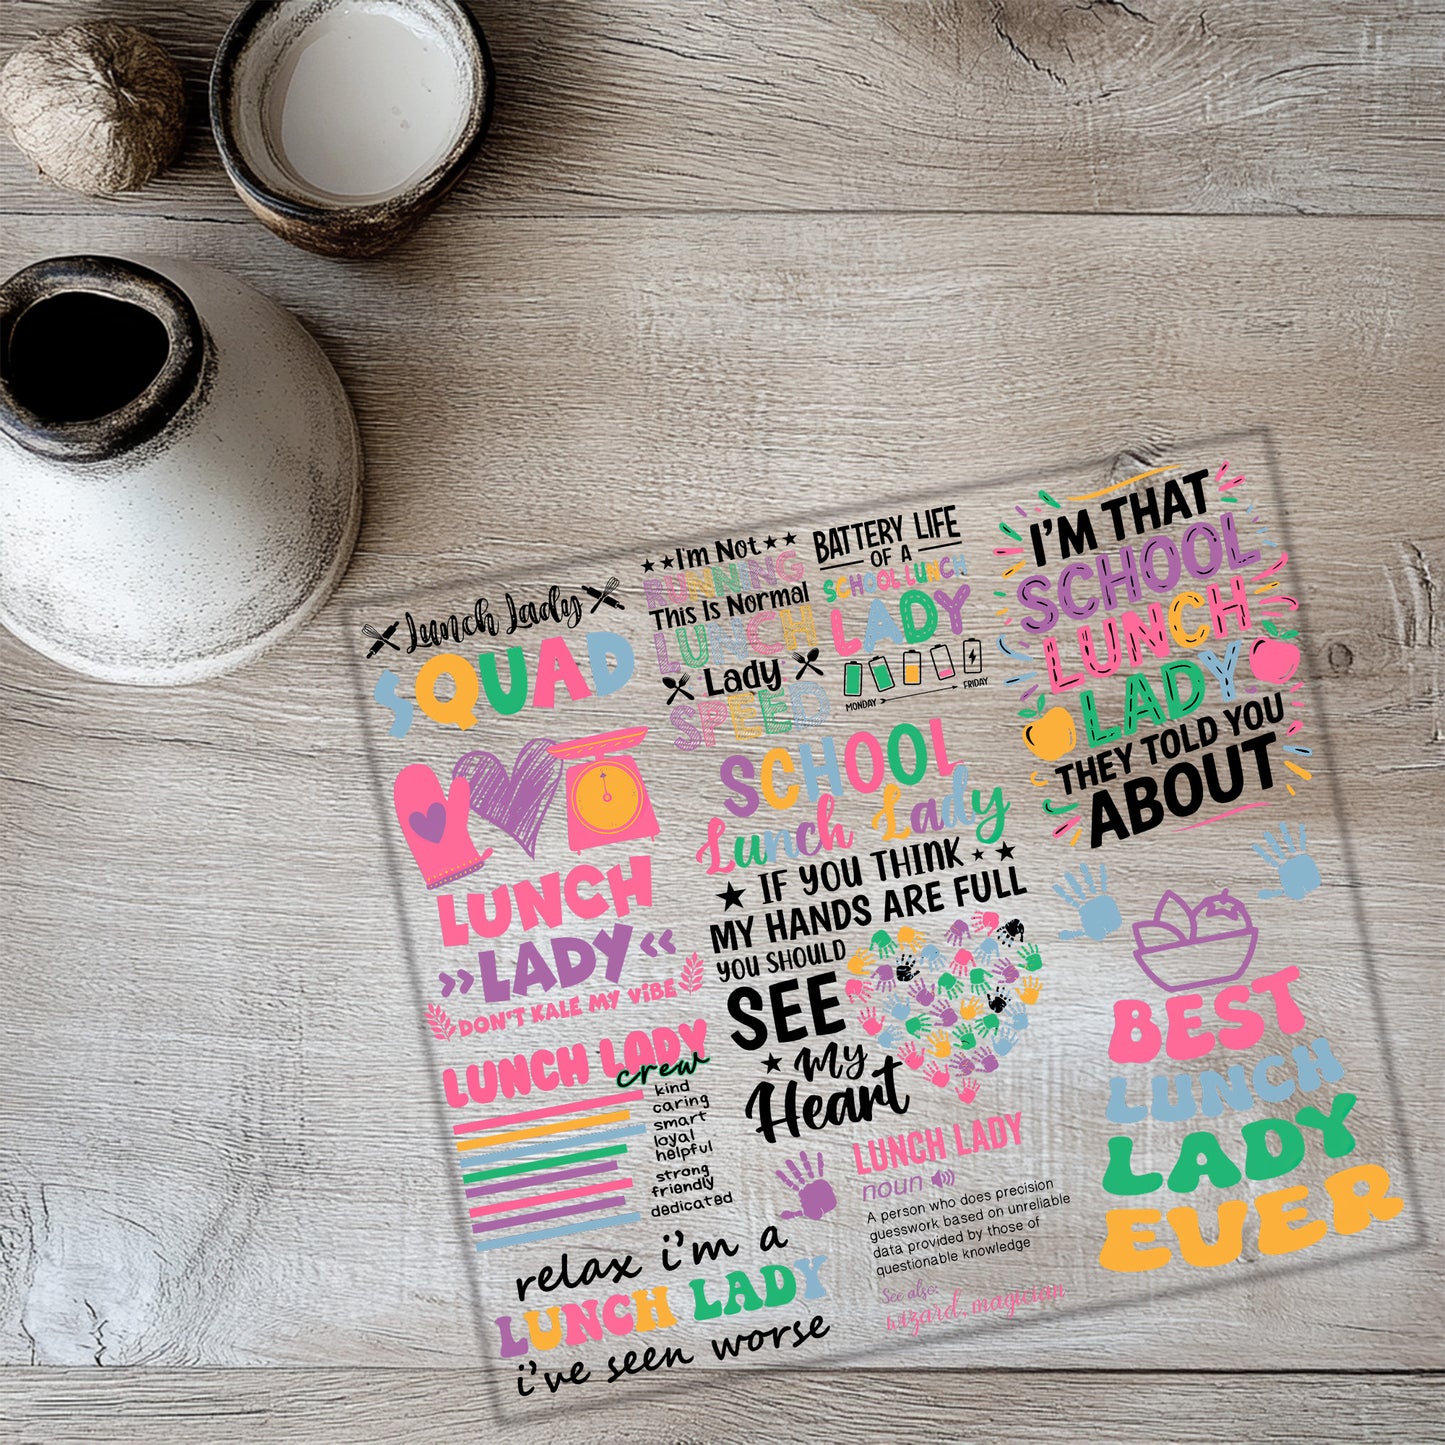 Lunch Lady
SQUAD
I'm Not
RUNNING
This Is Normal
LUNCH
Lady
SPEED
BATTERY LIFE
OF A
SCHOOL LUNCH
LADY
MONDAY
FRIDAY
I'M THAT
SCHOOL
LUNCH
LADY
THEY TOLD YOU
ABOUT
LUNCH
»LADY«
DON'T KALE MY VIBE
SCHOOL
Lunch Lady
IF YOU THINK
MY HANDS ARE FULL
YOU SHOULD
SEE
My
Heart
LUNCH LADY
crew
kind
caring
smart
loyal
helpful
strong
friendly
dedicated
BEST
LUNCH
LADY
EVER
relax i'm a
LUNCH LADY
i've seen worse
LUNCH LADY
noun
A person who does precision
guesswork based on unreliable
data provided by those of
questionable knowledge
See also:
wizard, magician